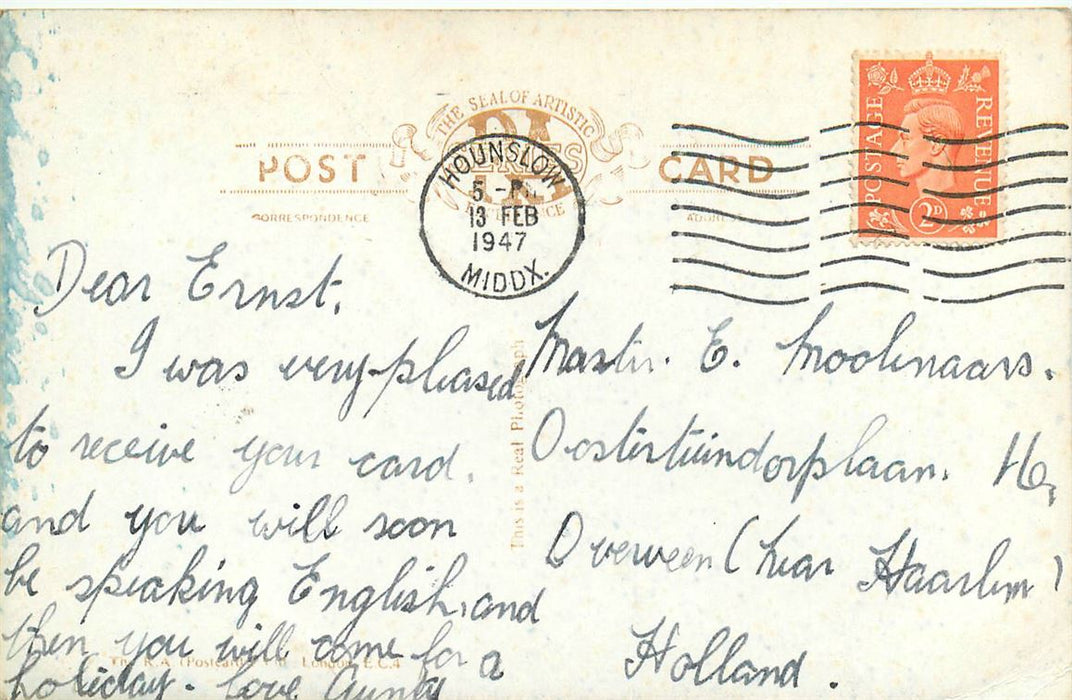 THE SEAL OF ARTISTIC
POST CARD
CORRESPONDENCE
ADDRESS
HOUNSLOW
5.-PM
13 FEB
1947
MIDDX.
POSTAGE
REVENUE
2D
Dear Ernst,
I was very pleased
to receive your card.
and you will soon
be speaking English, and
then you will come for a
holiday - love Aunty
This is a Real Photograph
The R.A. (Postcards) Ltd. London, E.C.4
Master. E. Moolenaars.
Oostertuindorplaan. 16,
Overveen (near Haarlem)
Holland.